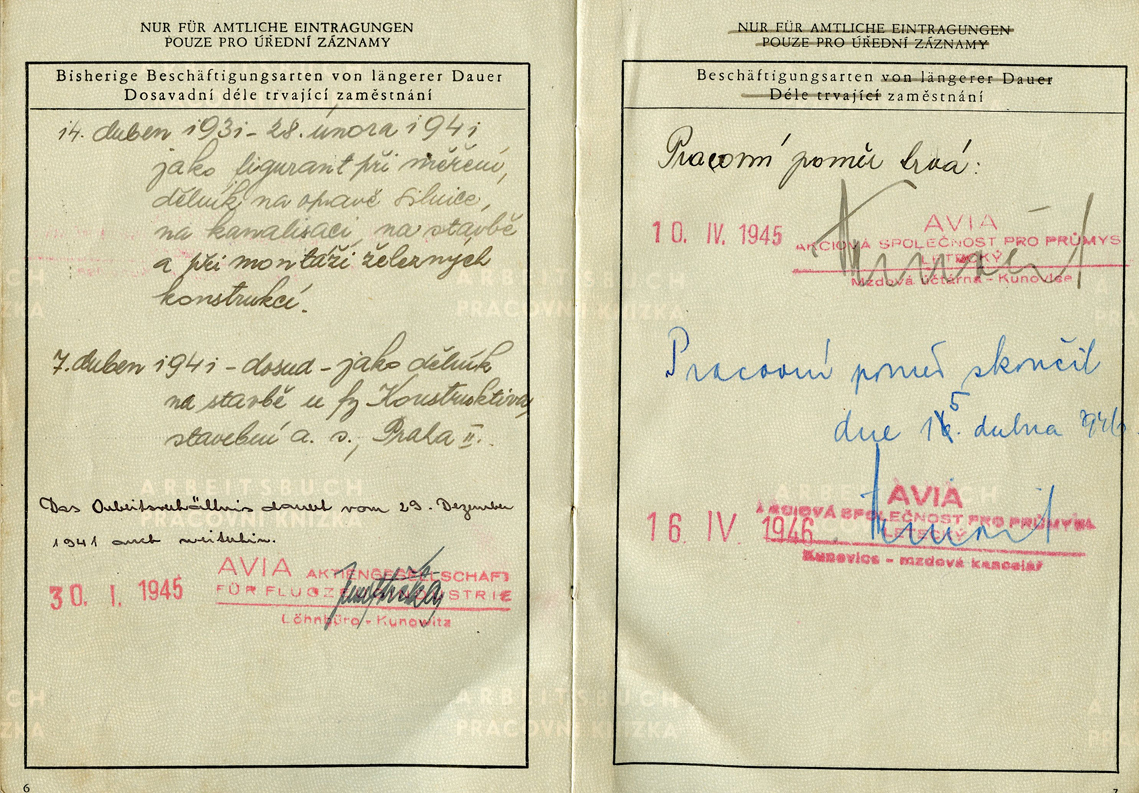 NUR FÜR AMTLICHE EINTRAGUNGEN
POUZE PRO ÚŘEDNÍ ZÁZNAMY
Bisherige Beschäftigungsarten von längerer Dauer
Dosavadní déle trvající zaměstnání
14. duben 1931 - 28. února 1941
jako figurant při měření,
dělník na opravě silnice,
na kanalisaci, na stavbě
a při montáži železných
konstrukcí.
7. duben 1941 - dosud - jako dělník
na stavbě u fy Konstruktiva,
stavební a. s., Praha II.
ARBEITSBUCH
PRACOVNÍ KNÍŽKA
Das Arbeitsverhältnis dauert vom 29. Dezember
1941 auch weiterhin.
30. I. 1945
AVIA AKTIENGESELLSCHAFT
FÜR FLUGZEUGINDUSTRIE
Löhnbüro - Kunowitz
6
NUR FÜR AMTLICHE EINTRAGUNGEN
POUZE PRO ÚŘEDNÍ ZÁZNAMY
Beschäftigungsarten von längerer Dauer
Déle trvající zaměstnání
Pracovní poměr trvá:
10. IV. 1945
AVIA
AKCIOVÁ SPOLEČNOST PRO PRŮMYS
LETECKÝ
Mzdová účtárna - Kunovice
ARBEITSBUCH
PRACOVNÍ KNÍŽKA
Pracovní poměr skončil
dne 15. dubna 1946
16 IV 1946
AVIA
AKCIOVÁ SPOLEČNOST PRO PRŮMYSL
LETECKÝ
Kunovice - mzdová kancelář
ARBEITSBUCH
PRACOVNÍ KNÍŽKA
7